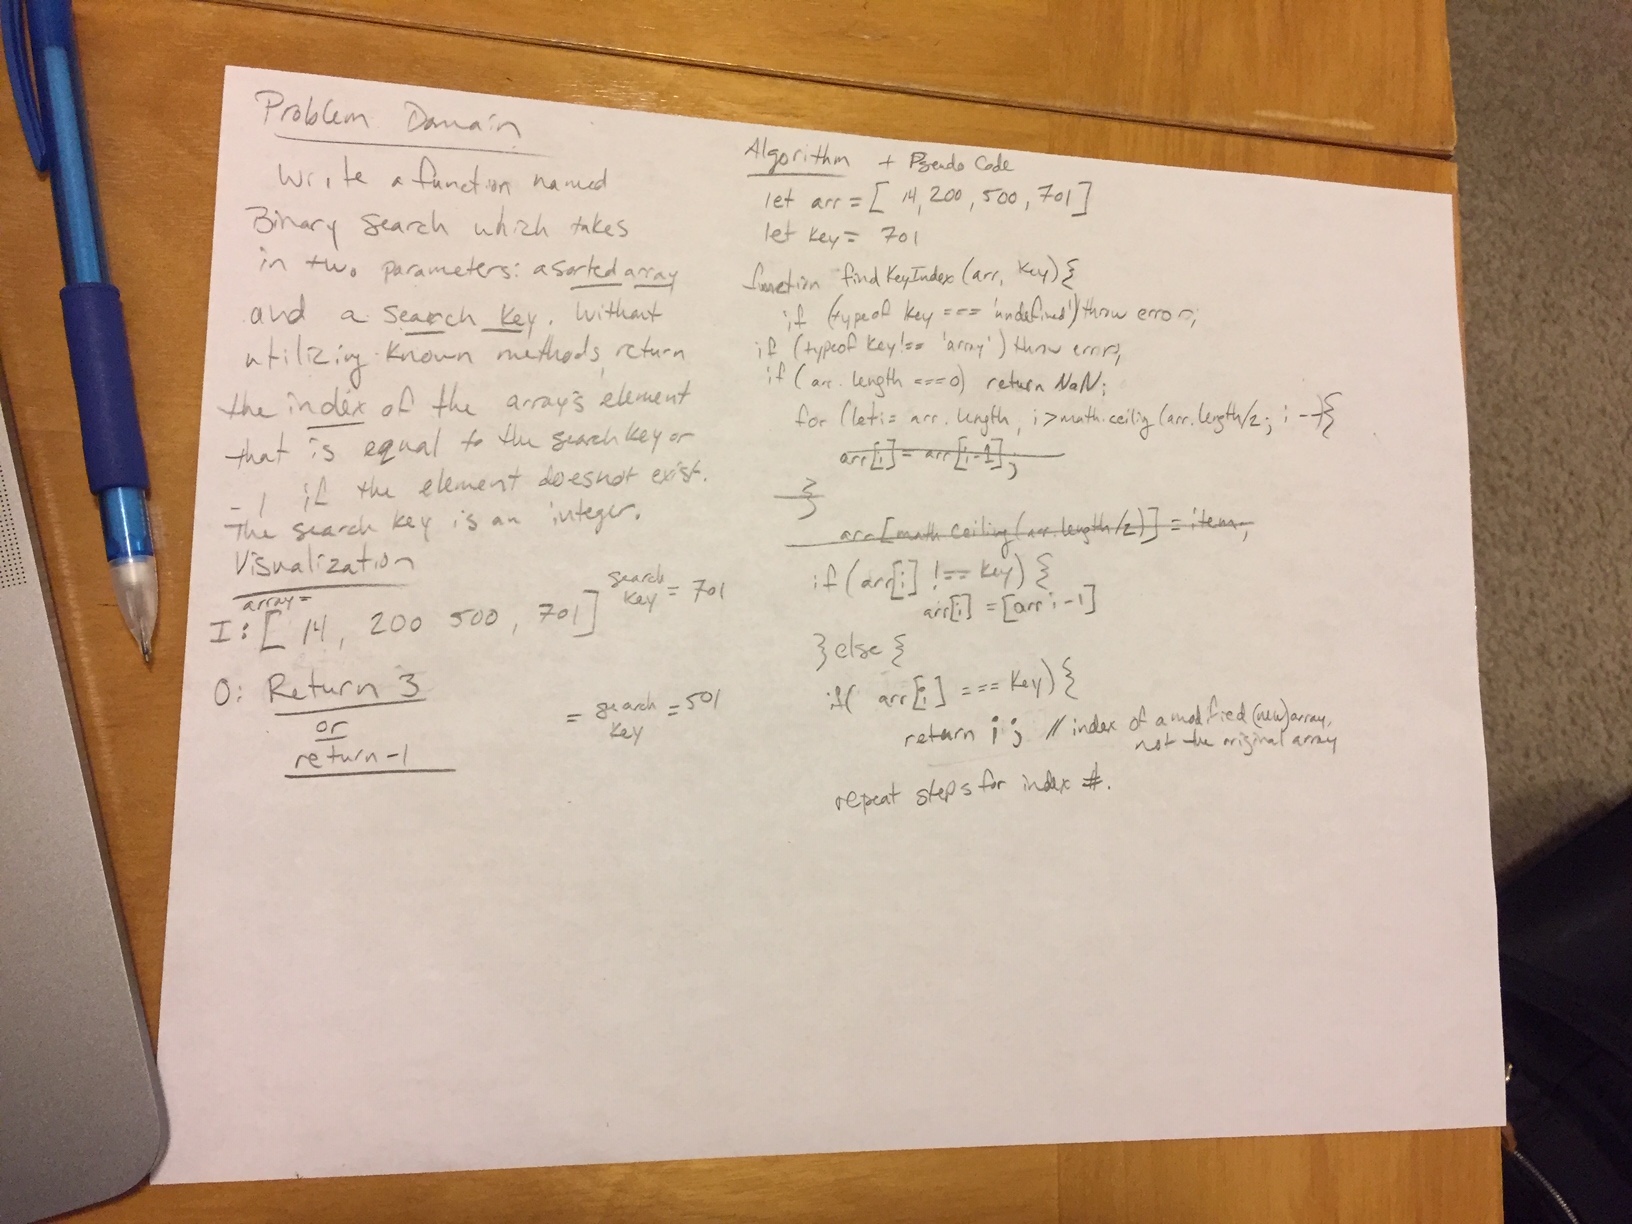 Problem Domain
Write a function named
Binary Search which takes
in two parameters: a sorted array
and a search key. Without
utilizing known methods, return
the index of the array's element
that is equal to the search key or
-1 if the element does not exist.
The search key is an integer.
Visualization
array=
I: [ 14, 200 500, 701 ] search key = 701
O: Return 3
or
return -1
= search key = 501
Algorithm + Pseudo Code
let arr = [ 14, 200, 500, 701 ]
let key = 701
function findKeyIndex (arr, key) {
if (typeof key === 'undefined') throw error;
if (typeof key !== 'array') throw error;
if (arr.length === 0) return NaN;
for (let i = arr.length, i > math.ceiling (arr.length/2; i --){
arr[i] = arr[i-1];
}
}
arr[math.ceiling(arr.length/2)] = item;
if (arr[i] !== key) {
arr[i] = [arr i-1]
} else {
if( arr[i] === key) {
return i; // index of a modified (new) array,
not the original array
repeat steps for index #.